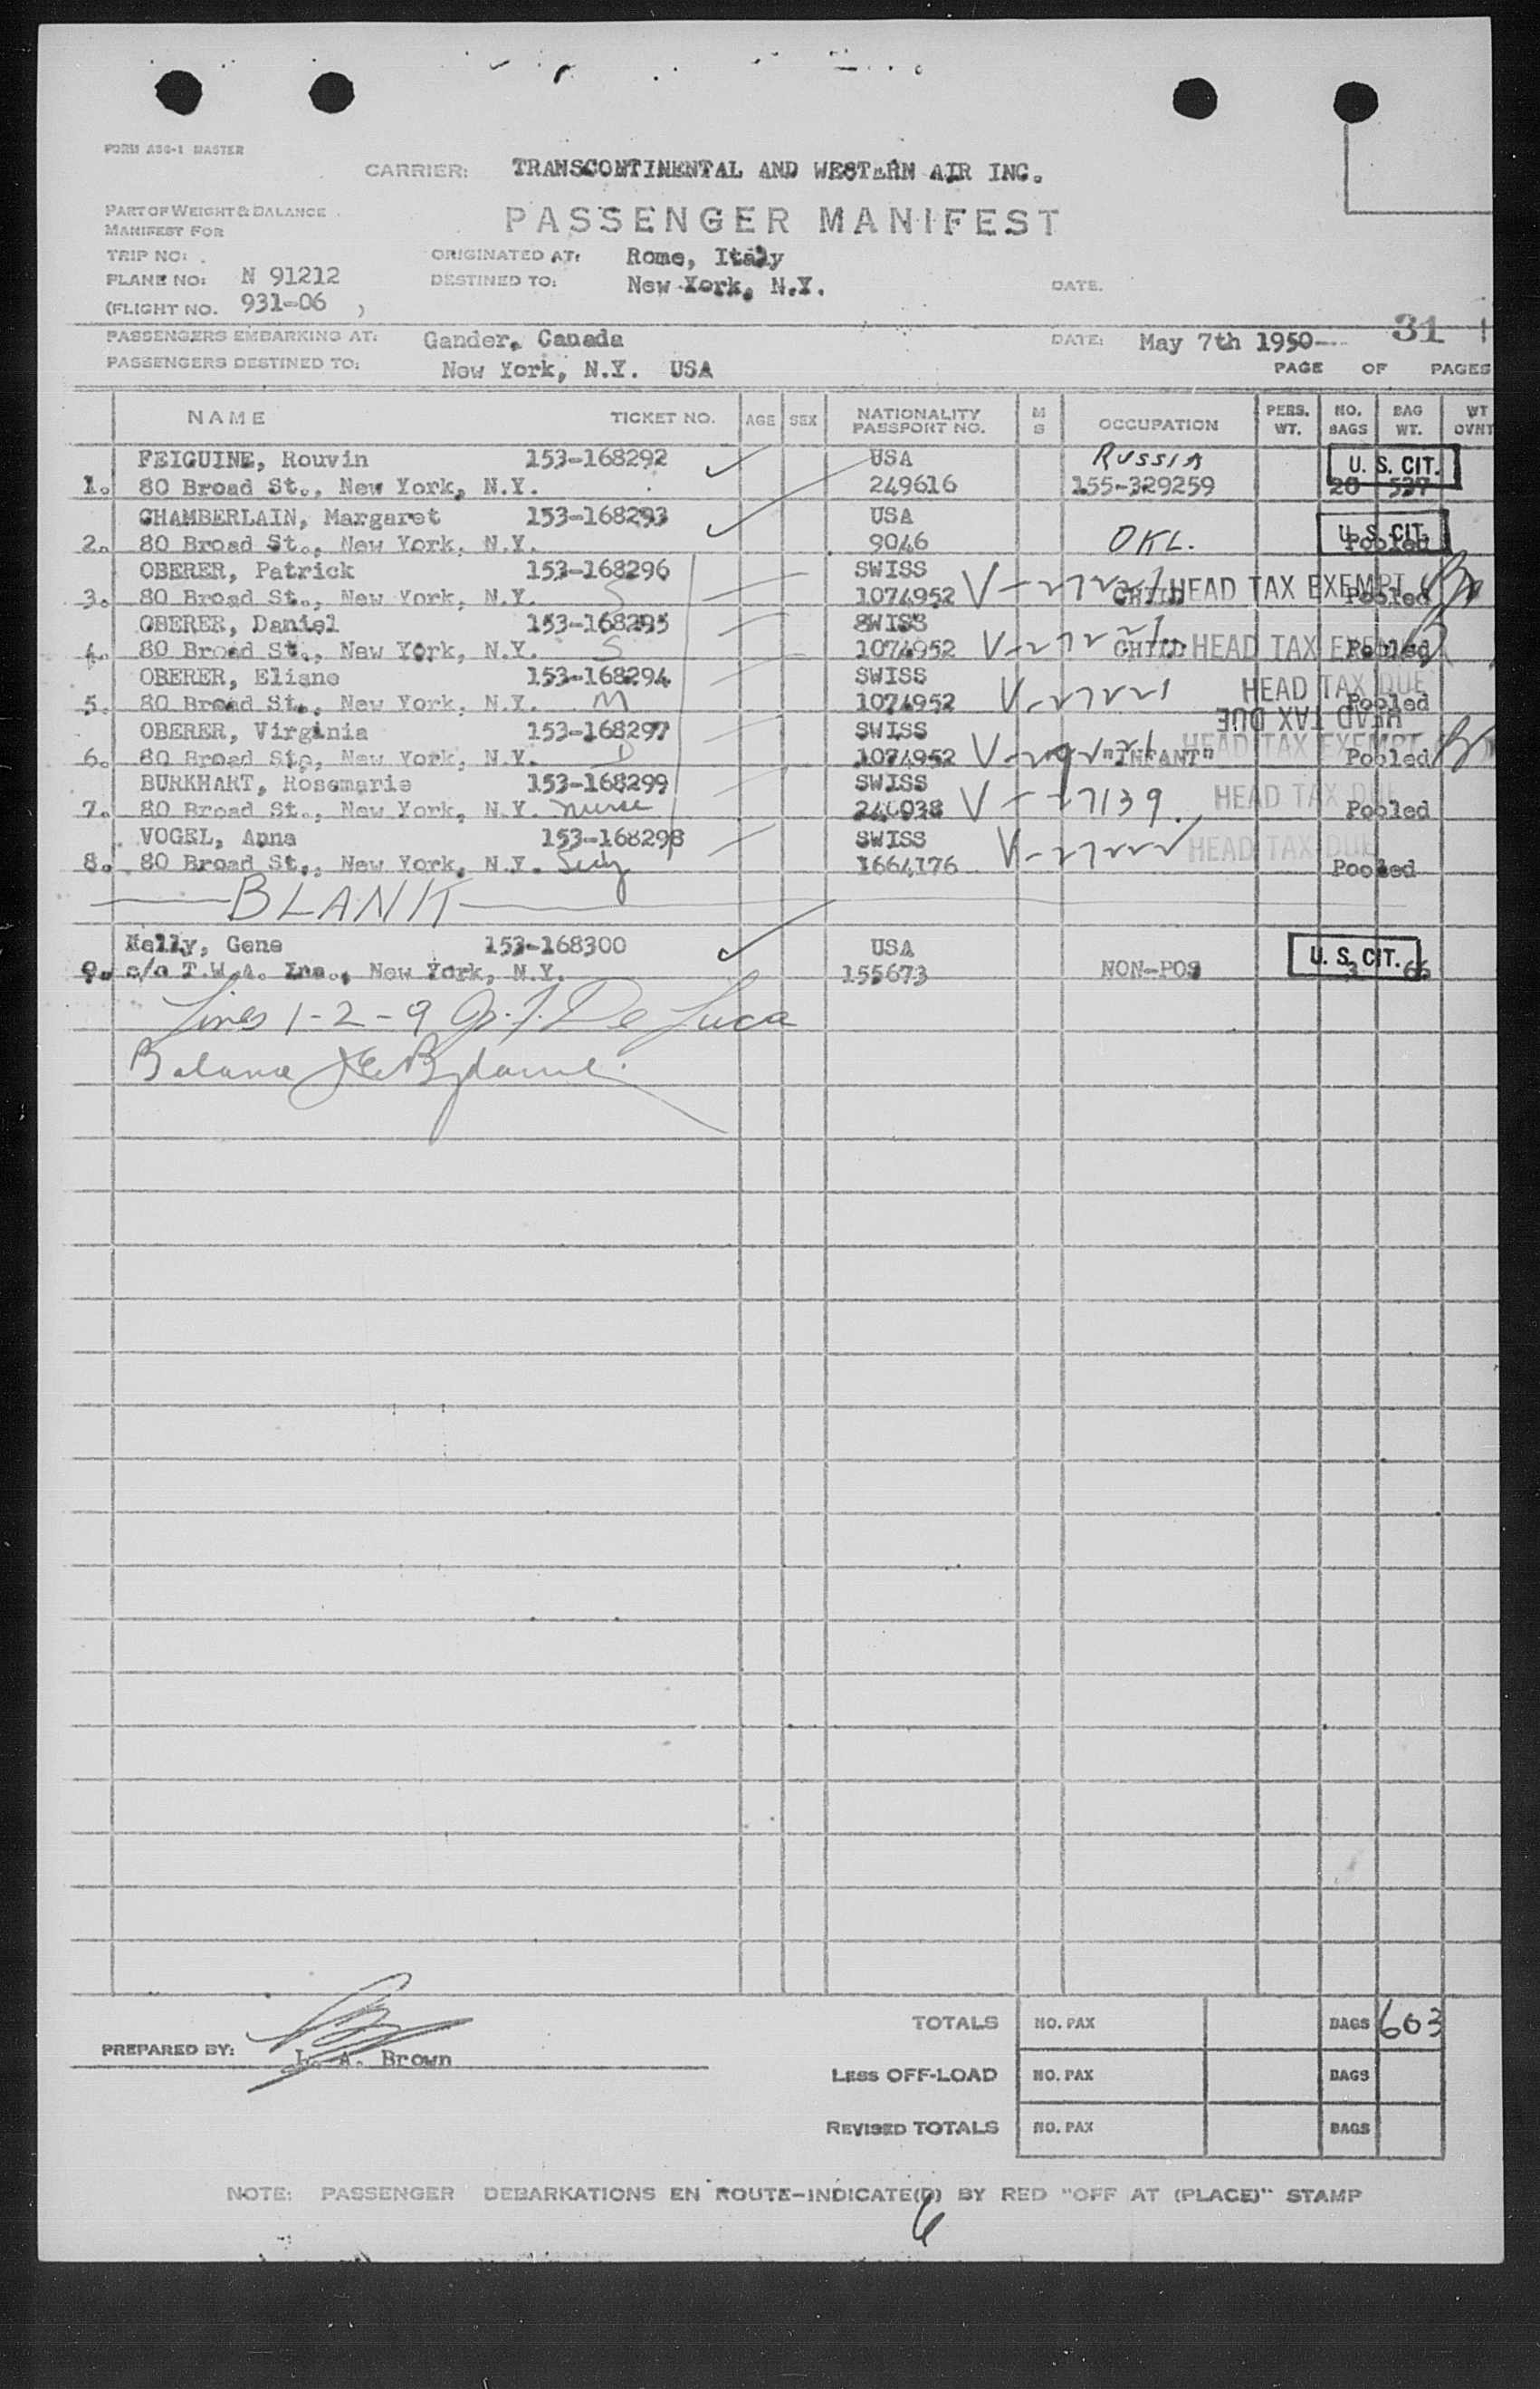 FORM ASG-1 MASTER
CARRIER: TRANSCONTINENTAL AND WESTERN AIR INC.
PART OF WEIGHT & BALANCE
PASSENGER MANIFEST
MANIFEST FOR
TRIP NO: ORIGINATED AT: Rome, Italy
PLANE NO: N 91212 DESTINED TO: New York, N.Y. DATE.
(FLIGHT NO. 931-06 )
PASSENGERS EMBARKING AT: Gander, Canada DATE: May 7th 1950 31
PASSENGERS DESTINED TO: New York, N.Y. USA PAGE OF PAGES
NAME TICKET NO. AGE SEX NATIONALITY PASSPORT NO. M S OCCUPATION PERS. WT. NO. BAGS BAG WT. WT OVNT
FEIGUINE, Rouvin 153-168292 USA RUSSIA U. S. CIT.
1. 80 Broad St., New York, N.Y. 249616 155-329259 20 537
CHAMBERLAIN, Margaret 153-168293 USA U. S. CIT.
2. 80 Broad St., New York, N.Y. 9046 OKL. Pooled
OBERER, Patrick 153-168296 SWISS HEAD TAX EXEMPT
3. 80 Broad St., New York, N.Y. S 1074952 V-27221 CHILD Pooled
OBERER, Daniel 153-168295 SWISS
4. 80 Broad St., New York, N.Y. S 1074952 V-27221 CHILD HEAD TAX EXEMPT Pooled
OBERER, Eliane 153-168294 SWISS HEAD TAX DUE
5. 80 Broad St., New York, N.Y. M 1074952 V-27221 Pooled
HEAD TAX DUE
OBERER, Virginia 153-168297 SWISS HEAD TAX EXEMPT
6. 80 Broad St., New York, N.Y. D 1074952 "INFANT" Pooled
BURKHART, Rosemarie 153-168299 SWISS HEAD TAX DUE
7. 80 Broad St., New York, N.Y. nurse 240038 V-27139 Pooled
VOGEL, Anna 153-168298 SWISS HEAD TAX DUE
8. 80 Broad St., New York, N.Y. 1664176 V-27222 Pooled
BLANK
Kelly, Gene 153-168300 USA U. S. CIT.
9. c/o T.W.A. Inc., New York, N.Y. 155673 NON-POS 3 66
Lines 1-2-9 De Luca
Balance
TOTALS NO. PAX BAGS 603
PREPARED BY: L. A. Brown
LESS OFF-LOAD NO. PAX BAGS
REVISED TOTALS NO. PAX BAGS
NOTE: PASSENGER DEBARKATIONS EN ROUTE-INDICATE(D) BY RED "OFF AT (PLACE)" STAMP
6